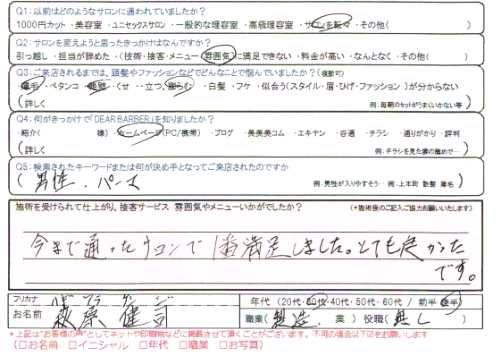 Q1: 以前はどのようなサロンに通われていましたか?
1000円カット・美容室・ユニセックスサロン・一般的な理容室・高級理容室・サロンを転々・その他( )
Q2: サロンを変えようと思ったきっかけはなんですか?
引っ越し・担当が辞めた・(技術・接客・メニュー・雰囲気)に満足できない・料金が高い・なんとなく・その他( )
Q3: ご来店されるまでは、頭髪やファッションなどでどんなことで悩んでいましたか?(複数可)
薄毛・ペタンコ・・くせ・立つ、膨らむ・白髪・フケ・似合う(スタイル・眉・ひげ・ファッション)が分からない
(詳しく 例:毎朝のセットがうまくいかない等)
Q4: 何がきっかけで「DEAR BARBER」を知りましたか?
紹介( 様)・ホームページ(PC/携帯)・ブログ・美美美コム・エキテン・谷通・チラシ・通りがかり・評判
(詳しく 例:チラシを見た妻の薦めで…)
Q5: 検索されたキーワードまたは何が決め手となってご来店されたのですか
(男性、パーマ 例:男性が入りやすそう…例:上本町 散髪 薄毛)
施術を受けられて仕上がり、接客サービス 雰囲気やメニューいかがでしたか? (*施術後のご記入ご協力お願いいたします)
今まで通ったサロンで1番満足しました。とても良かった
です。
フリカナ
お名前 健司
年代 (20代・30代・40代・50代・60代 / 前半・後半)
職業( 製造 業) 役職( 無し )
*上記は"お客様の声"としてネットや印刷物などに掲載させて頂くことがございます。不可の場合は以下☑をお願いします
(□お名前 □イニシャル □年代 □職業 □お写真)